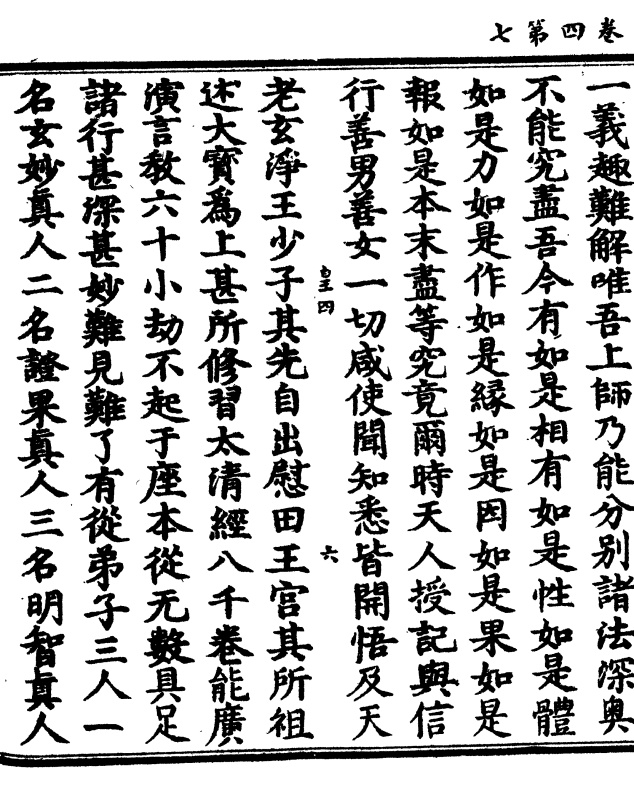 卷四第七
一義趣難解唯吾上師乃能分别諸法深奥
不能究盡吾今有如是相有如是性如是體
如是力如是作如是緣如是因如是果如是
報如是本末盡等究竟爾時天人授記與信
行善男善女一切咸使聞知悉皆開悟及天
皇四
六
老玄淨王少子其先自出慰田王宫其所祖
述大寳爲上甚所修習太清經八千卷能廣
演言教六十小劫不起于座本從无數具足
諸行甚深甚妙難見難了有從弟子三人一
名玄妙真人二名證果真人三名明智真人